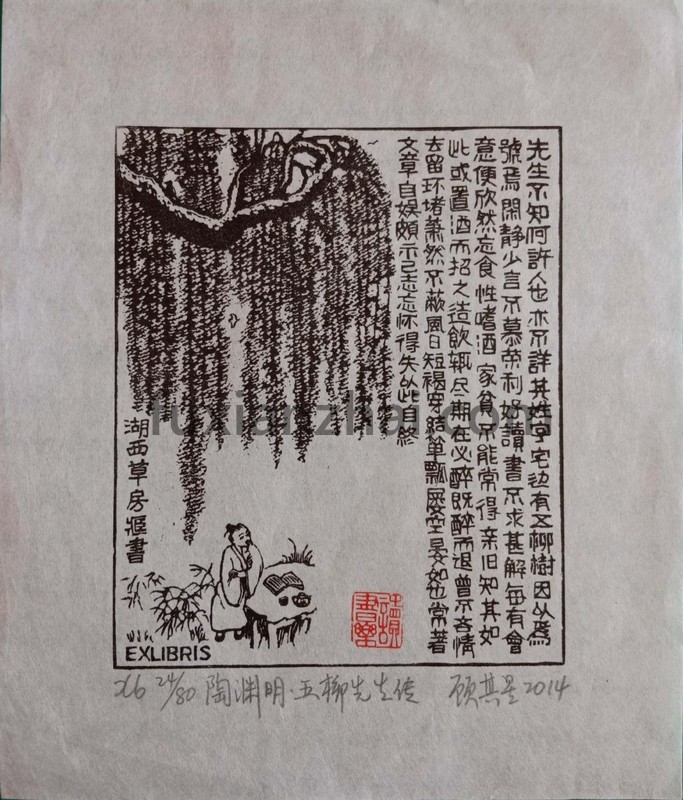 先生不知何許人也亦不詳其姓字宅边有五柳樹因以爲
號焉閑静少言不慕荣利好讀書不求甚解每有會
意便欣然忘食性嗜酒家貧不能常得亲旧知其如
此或置酒而招之造飲辄尽期在必醉既醉而退曾不吝情
去留环堵萧然不蔽風日短褐穿結箪瓢屡空晏如也常著
文章自娱頗示己志忘怀得失以此自終
湖西草房藏書
讀書樂
EXLIBRIS
X6 24/80 陶渊明·五柳先生传 顾其星 2014
luxianzhai.com